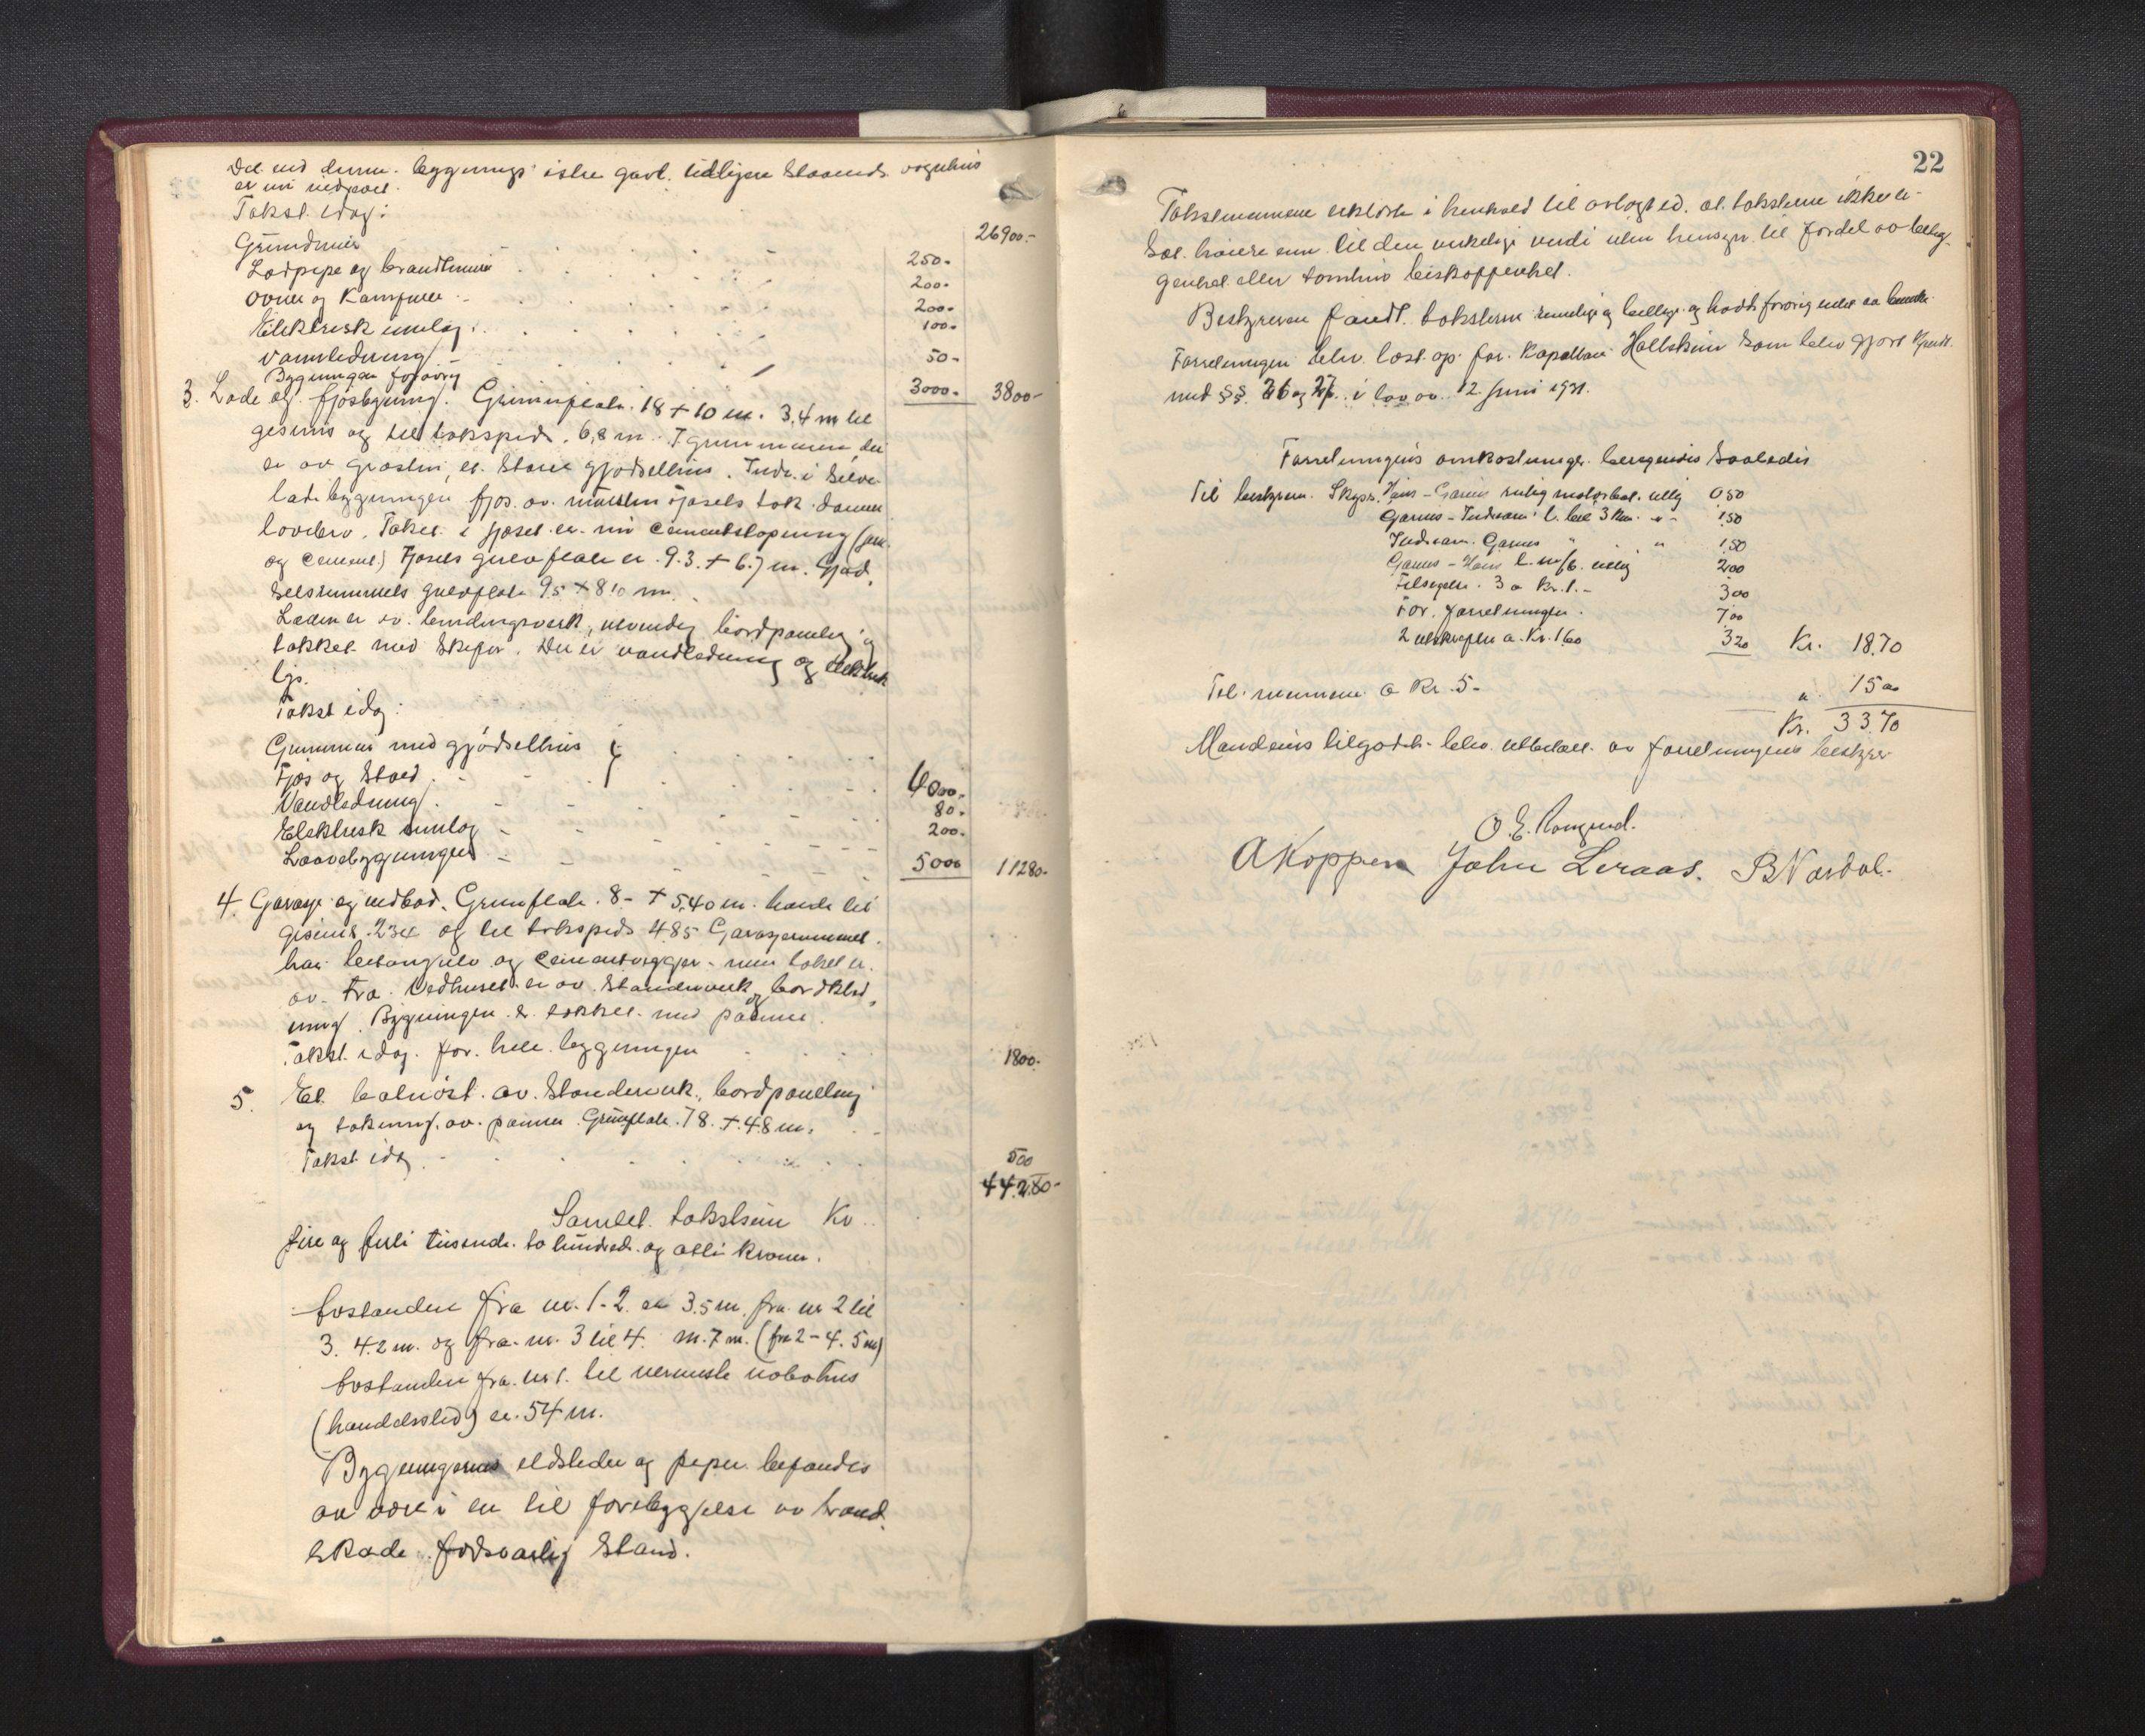 Det ved denne bygnings østre gavl tidligere staaende vognhus
er nu nedrevet.
Takst idag: 26900.-
Grundmur 250.-
Lodpipe og brandmur 200.-
Ovner og Kamfyrer 200.-
Elektrisk innlag 100.-
Vannledning 50-
Bygningen forøvrig 3000.- 3800-
3. Lade og fjøsbygning. Grunnflate 18 + 10 m. 3,4 m til
gesims og til takspids 6,8 m. I grunnmuren der
er av graasten er støre gjødselhus. Inde i selve
ladebygningen fjøs av mursten fjøsets tak danner
lovebro. Taket i fjøset er nu cementstøpning (jern
og cement) Fjøsets gulvflate er 9.3 + 6.7 m. Gjød-
selsrummets gulvflate 95 + 810 m.
Laden er av bindingsverk, utvendig bordpaneling og
takket med skifer. Der er vandledning og elektrisk
lys.
Takst idag:
Grunnmur med gjødselhus }
Fjøs og Stald 6000.-
Vandledning 80.-
Elektrisk innlag 200.-
Laavebygningen 5000 11280.-
4. Garasje og vedbod. Grunnflate 8- + 5,40 m. høide til
gesims 234 og til takspids 485 Garasjerummet
har betongulv og cementvegger - men taket er
av tra. Vedhuset er av standerverk og bordkled-
ning. Bygningen er takket med panner.
Takst idag for hele bygningen 1800.-
5. Et batnøst av Standerverk, bordpaneling
og takning av panner Grunnflate 78 + 4.8 m.
Takst idag 500
44280-
Samlet takstsum Kr.
fire og furti tusende to hundrede og otti kroner.
Avstanden fra nr. 1-2 er 3.5 m. fra nr 2 til
3. 4.2 m. og fra nr. 3 til 4. m. 7 m. (fra 2-4. 5 m)
Avstanden fra nr 1. til nermeste nabohus
(handelssted) er 54 m.
Bygningernes ildsteder og piper befandes
av være i en til forebyggelse av brand-
skade forsvarlig stand.
22
Takstmennene erklærte i henhold til avlagt ed, at takstene ikke er
sat høiere enn til den virkelige verdi uten hensyn til fordel av belig-
genhet eller tomtens beskaffenhet.
Bestyreren fandt takstene rimelige og billige og hadde forøvrig intet at bemerke.
Forretningen blev læst op for Kapellan Hallheim som blev gjort kjendt
med §§ 26 og 27 i lov av 12 Juni 1931.
Forretningens omkostninger beregnedes saaledes
Til bestyreren Skyss. Høis - Garnes rutig motorbat. utlg 050
Garnes - Indream l. bil 3 Km. " - 150
Indream - Garnes " " 150
Garnes - Høis l. m/b. utlg 200
Tilsigelse 3 a Kr. 1.- 300
For forretningen 700
2 utskrifter a Kr. 1.60 320 Kr. 18.70
Til mennene a Kr. 5- " 15 00
Kr. 33.70
Mændenes tilgodeh. blev utbetalt av forretningens bestyrer
O. E. Romgrud.
A Koppen John Leraas. B Nordal.